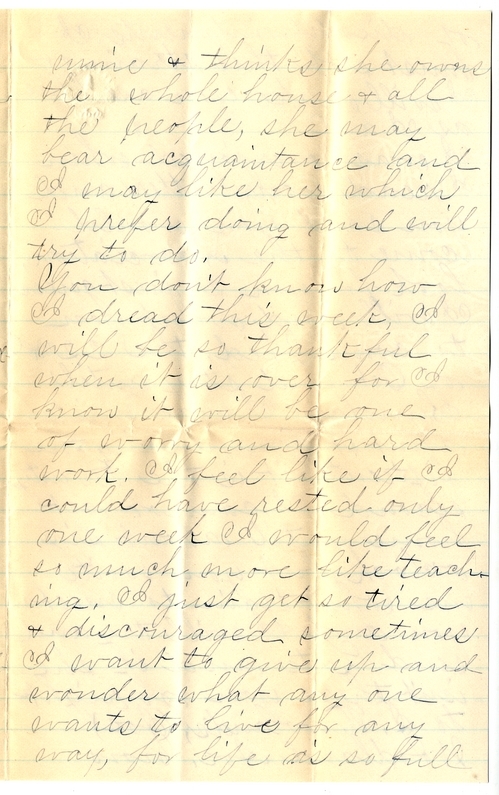 mine & thinks she owns
the whole house & all
the people, she may
bear acquaintance and
I may like her which
I prefer doing and will
try to do.
You don't know how
I dread this week, I
will be so thankful
when it is over for I
know it will be one
of worry and hard
work. I feel like if I
could have rested only
one week I would feel
so much more like teach-
ing. I just get so tired
& discouraged sometimes
I want to give up and
wonder what any one
wants to live for any
way, for life is so full